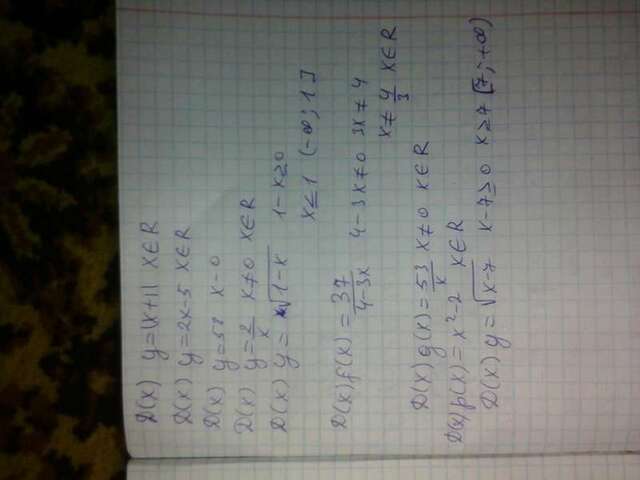 D(x) y=|x+1| x∈R
D(x) y=2x-5 x∈R
D(x) y=53 x-0
D(x) y=2/x x≠0 x∈R
D(x) y=√1-x 1-x≥0
x≤1 (-∞; 1]
D(x) f(x)=37/4-3x 4-3x≠0 3x≠4
x≠4/3 x∈R
D(x) g(x)=53/x x≠0 x∈R
D(x) p(x)=x²-2 x∈R
D(x) y=√x-7 x-7≥0 x≥7 [7; +∞)